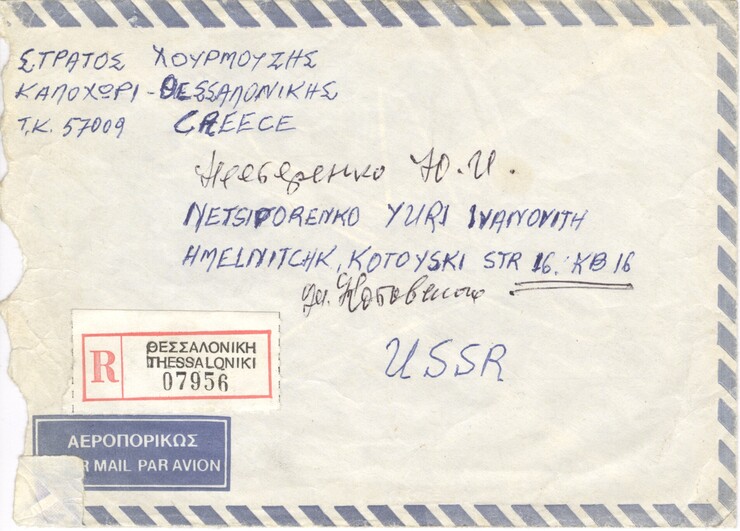 ΣΤΡΑΤΟΣ ΧΟΥΡΜΟΥΖΗΣ
ΚΑΛΟΧΩΡΙ - ΘΕΣΣΑΛΟΝΙΚΗΣ
Τ.Κ. 57009 GREECE
Ю. И.
NETSIPORENKO YURI IVANOVITH
HMELNITCHK, KOTOVSKI STR 16. KB 16
ул. Котовского
USSR
R ΘΕΣΣΑΛΟΝΙΚΗ
THESSALONIKI
07956
ΑΕΡΟΠΟΡΙΚΩΣ
R MAIL PAR AVION